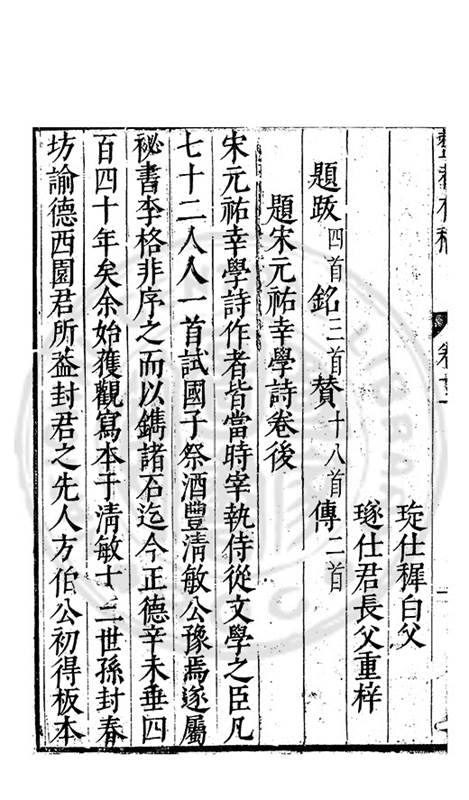 卷十二
琁仕穉白父
璲仕君長父重梓
題跋四首銘三首贊十八首傳二首
題宋元祐幸學詩卷後
宋元祐幸學詩作者皆當時宰執侍從文學之臣凡
七十二人人一首試國子祭酒豐清敏公豫焉遂屬
祕書李格非序之而以鐫諸石迄今正德辛未垂四
百四十年矣余始獲觀寫本于清敏十三世孫封春
坊諭德西園君所葢封君之先人方伯公初得板本